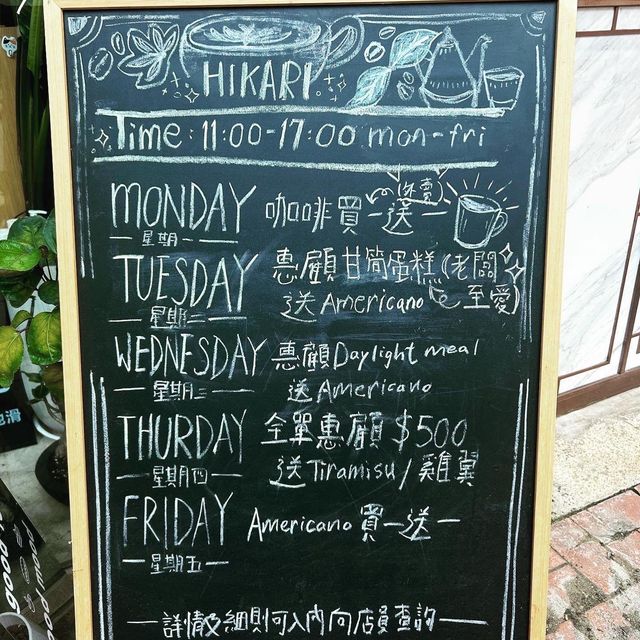 HIKARI
Time: 11:00-17:00 mon-fri
MONDAY 咖啡買一送一
(外賣)
星期一
TUESDAY 惠顧甘筒蛋糕(老闆
星期二 送Americano 至愛)
WEDNESDAY 惠顧Daylight meal
星期三 送Americano
THURDAY 全單惠顧$500
星期四 送Tiramisu/雞翼
FRIDAY Americano買一送一
星期五
詳情及細則可入內向店員查詢